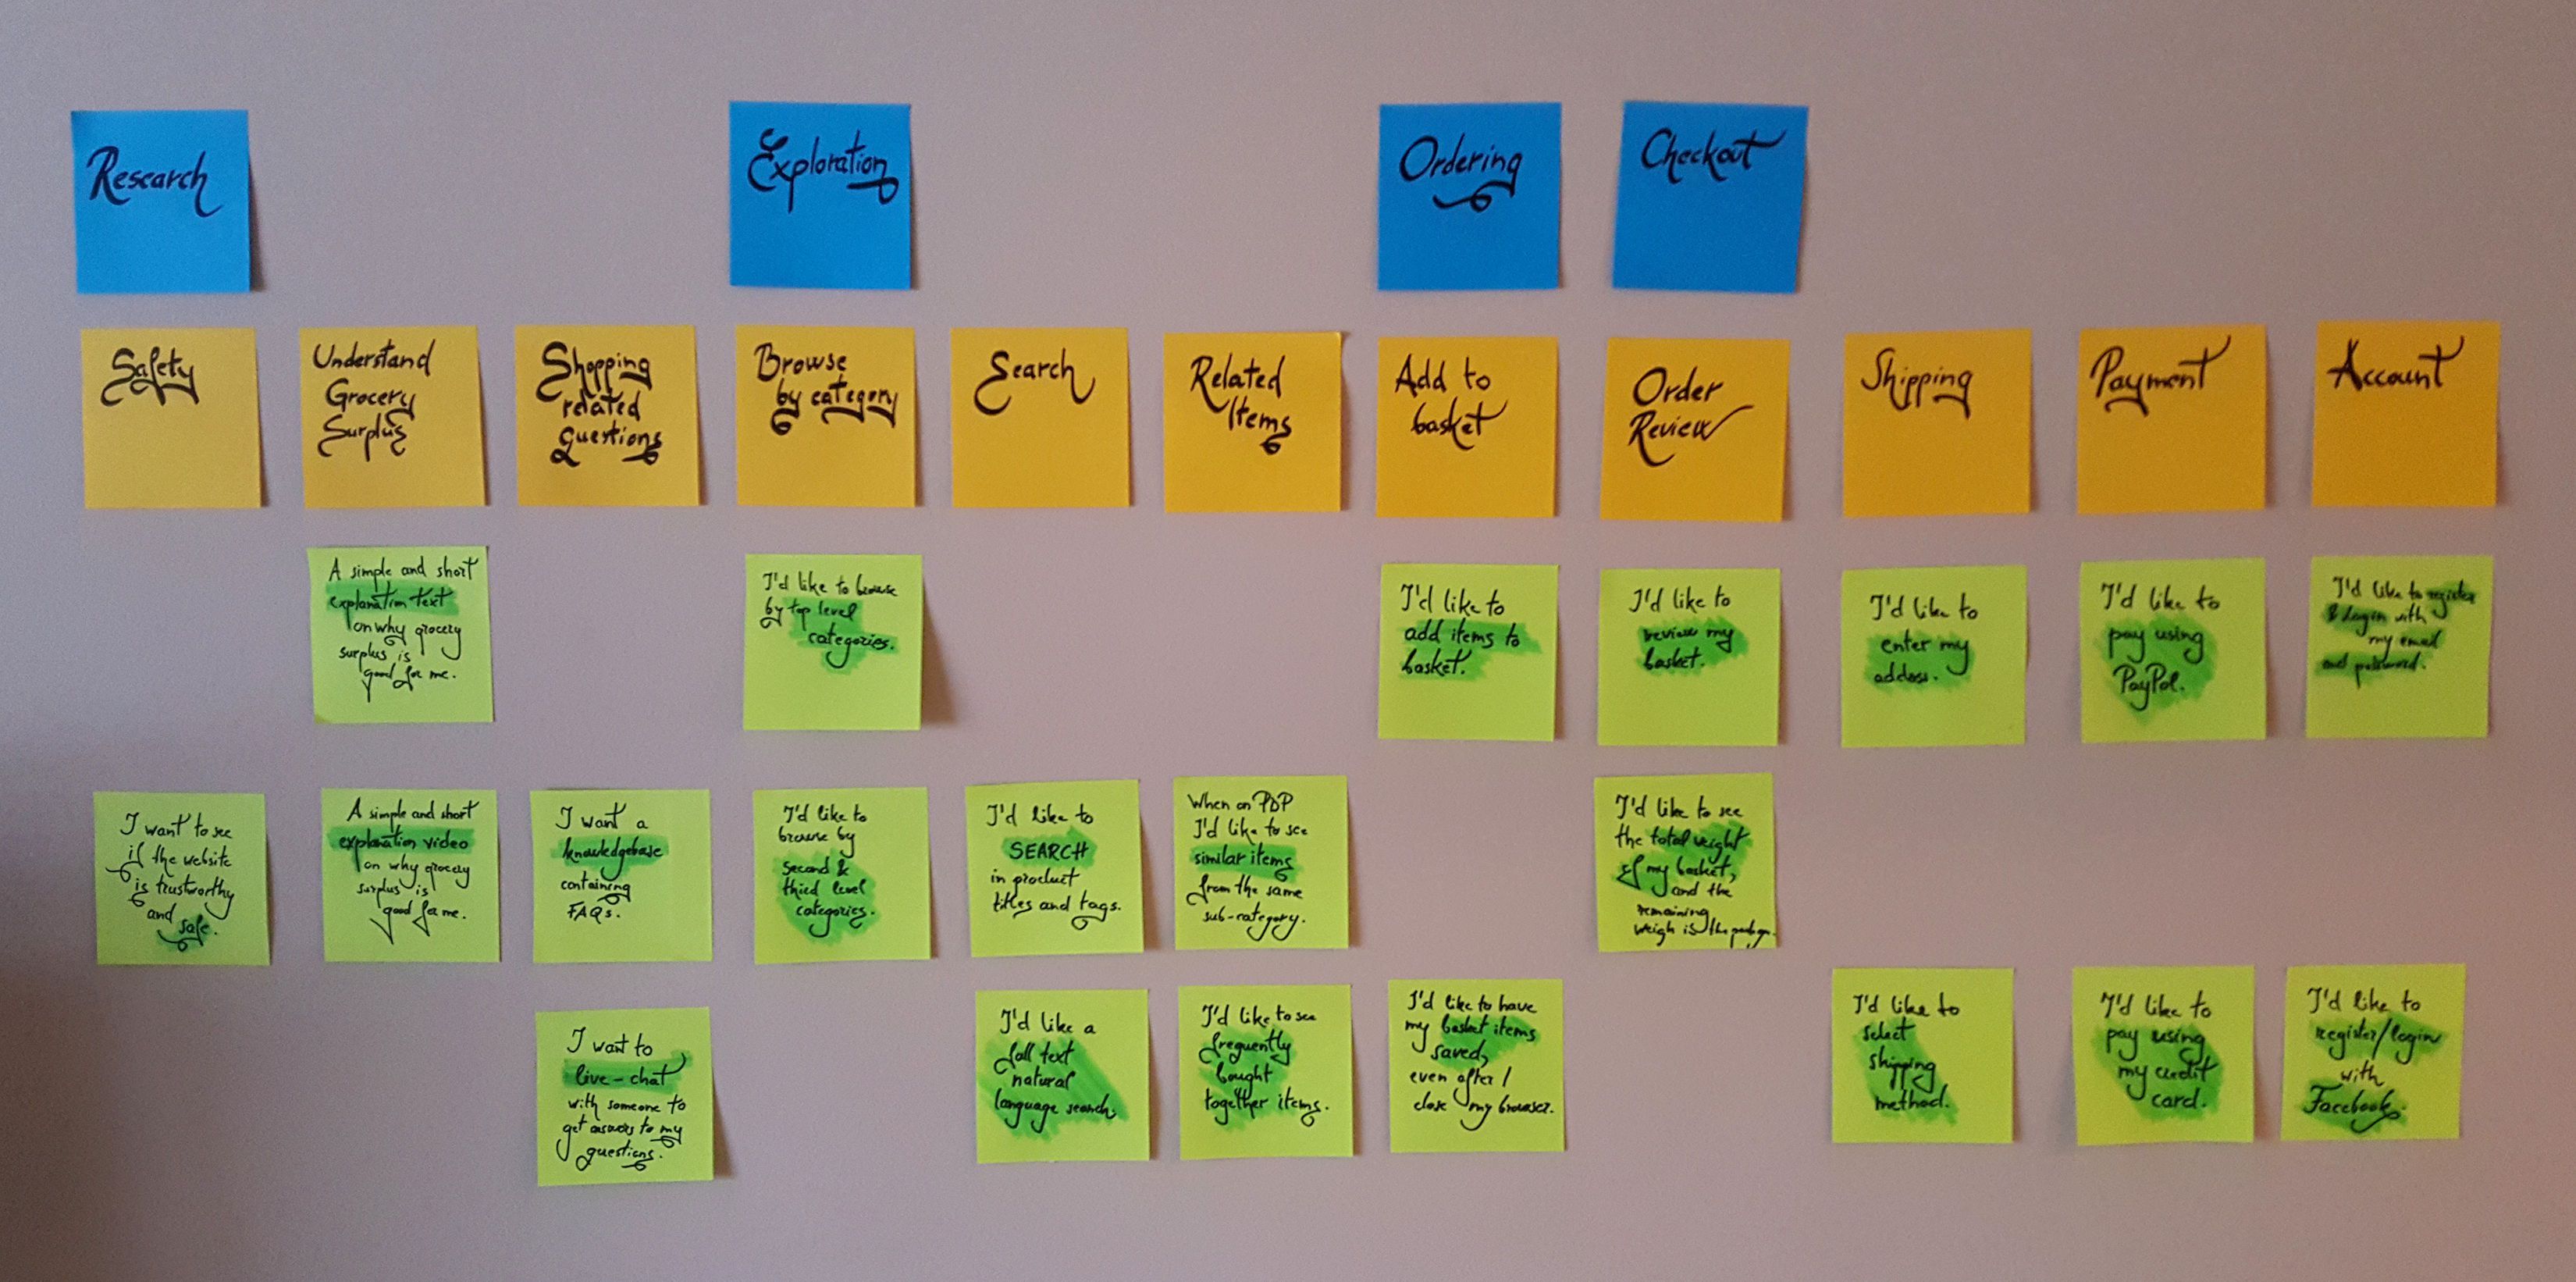 Research
Exploration
Ordering
Checkout
Safety
Understand
Grocery
Surplus
Shopping
related
questions
Browse
by category
Search
Related
Items
Add to
basket
Order
Review
Shipping
Payment
Account
A simple and short
explanation text
on why grocery
surplus is
good for me.
I'd like to browse
by top level
categories.
I'd like to
add items to
basket.
I'd like to
review my
basket.
I'd like to
enter my
address.
I'd like to
pay using
PayPal.
I'd like to register
& Login with
my email
and password.
I want to see
if the website
is trustworthy
and
safe.
A simple and short
explanation video
on why grocery
surplus is
good for me.
I want a
knowledgebase
containing
FAQs.
I'd like to
browse by
second &
third level
categories.
I'd like to
SEARCH
in product
titles and tags.
When on PDP
I'd like to see
similar items
from the same
sub-category.
I'd like to see
the total weight
of my basket,
and the
remaining
weigh is the
I want to
live-chat
with someone to
get answers to my
questions.
I'd like a
full text
natural
language search.
I'd like to see
frequently
bought
together items.
I'd like to have
my basket items
saved,
even after I
close my browser.
I'd like to
select
shipping
method.
I'd like to
pay using
my credit
card.
I'd like to
register/login
with
Facebook.